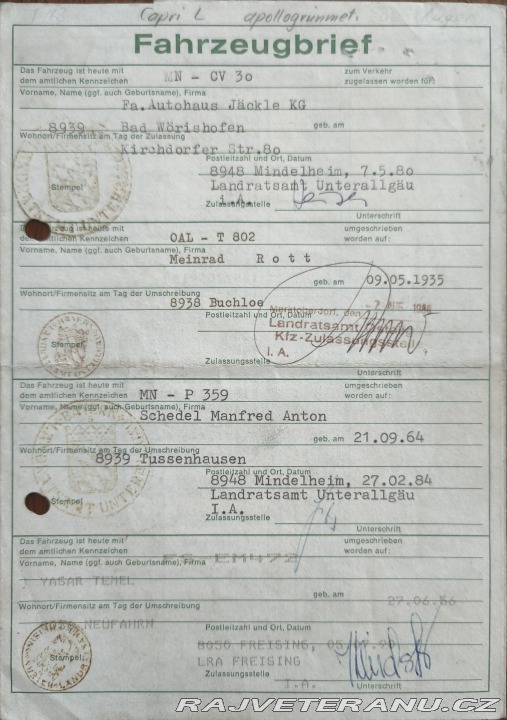 Capri L apollogrünmet.
Fahrzeugbrief
Das Fahrzeug ist heute mit
dem amtlichen Kennzeichen MN - CV 30 zum Verkehr
zugelassen worden für:
Vorname, Name (ggf. auch Geburtsname), Firma
Fa. Autohaus Jäckle KG
8939 Bad Wörishofen geb. am
Wohnort/Firmensitz am Tag der Zulassung
Kirchdorfer Str.80
Postleitzahl und Ort, Datum
8948 Mindelheim, 7.5.80
Landratsamt Unterallgäu
Stempel i.A.
Zulassungsstelle
Unterschrift
Das Fahrzeug ist heute mit
dem amtlichen Kennzeichen OAL - T 802 umgeschrieben
worden auf:
Vorname, Name (ggf. auch Geburtsname), Firma
Meinrad Rott
geb. am 09.05.1935
Wohnort/Firmensitz am Tag der Umschreibung
8938 Buchloe
Postleitzahl und Ort, Datum
Marktoberdorf, den
Landratsamt
Kfz-Zulassungsstelle
Stempel I. A.
Zulassungsstelle
Unterschrift
Das Fahrzeug ist heute mit
dem amtlichen Kennzeichen MN - P 359 umgeschrieben
worden auf:
Vorname, Name (ggf. auch Geburtsname), Firma
Schedel Manfred Anton
geb. am 21.09.64
Wohnort/Firmensitz am Tag der Umschreibung
8939 Tussenhausen
Postleitzahl und Ort, Datum
8948 Mindelheim, 27.02.84
Landratsamt Unterallgäu
Stempel I.A.
Zulassungsstelle
Unterschrift
Das Fahrzeug ist heute mit
dem amtlichen Kennzeichen FS-EM472 umgeschrieben
worden auf:
Vorname, Name (ggf. auch Geburtsname), Firma
YASAR TEMEL
geb. am 27.06.56
Wohnort/Firmensitz am Tag der Umschreibung
NEUFAHRN
Postleitzahl und Ort, Datum
8050 FREISING,
Stempel LRA FREISING
Zulassungsstelle
I.A. Unterschrift
RAJVETERANU.CZ